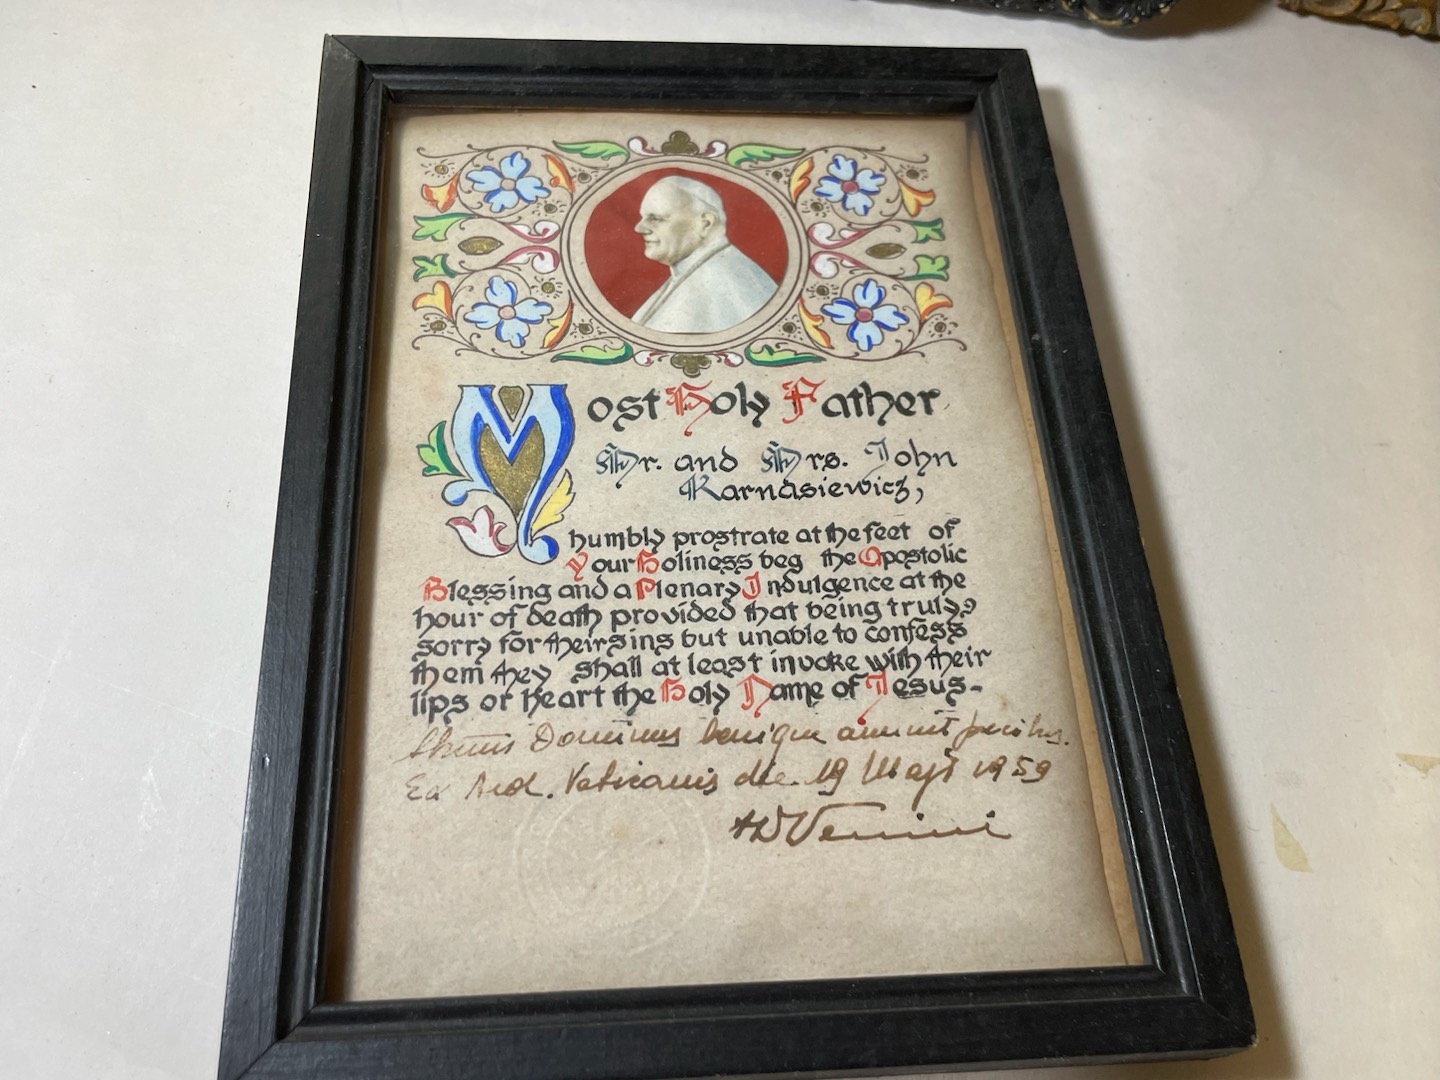 Most Holy Father
Mr. and Mrs. John
Karnasiewicz,
humbly prostrate at the feet of
Your Holiness beg the Apostolic
Blessing and a Plenary Indulgence at the
hour of death provided that being truly
sorry for their sins but unable to confess
them they shall at least invoke with their
lips or heart the Holy Name of Jesus-
Dominus benigne annuit precibus.
Ex Aed. Vaticanis die 19 Maji 1959